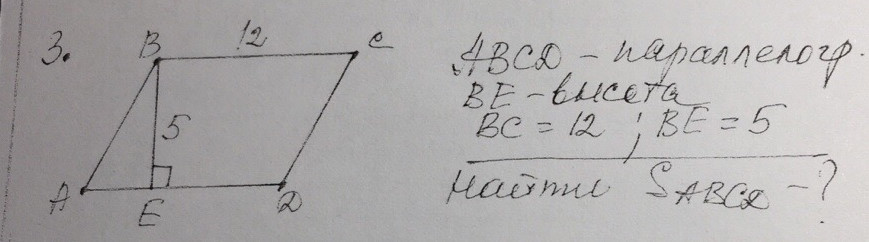 3.
B
12
C
5
A
E
D
ABCD - параллелогр.
BE - высота
BC = 12 ; BE = 5
Найти S ABCD - ?